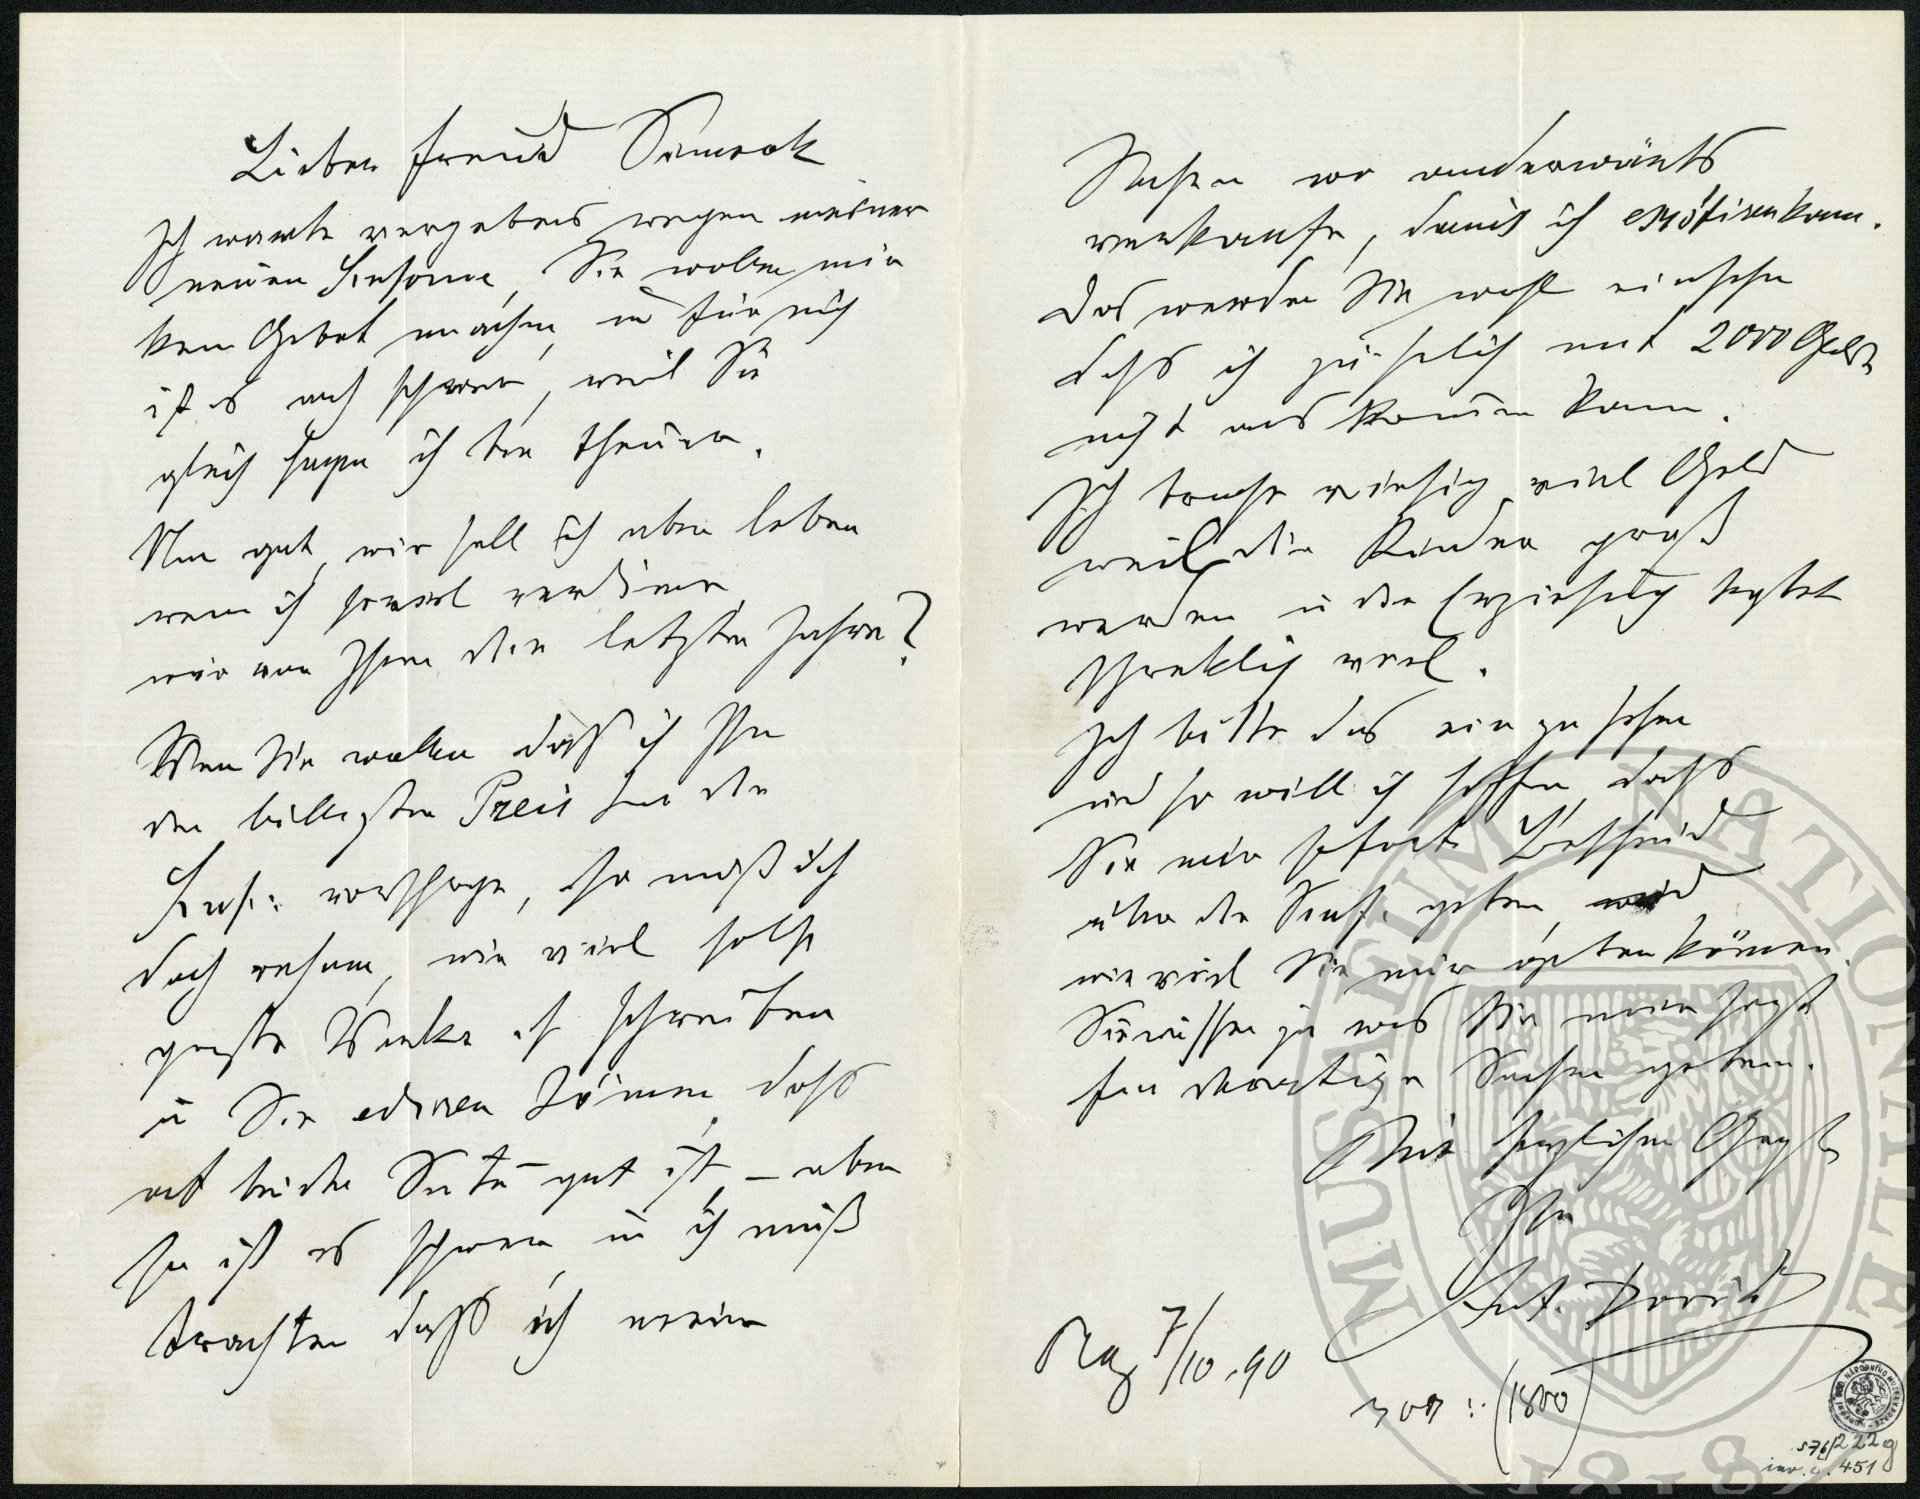 Lieber Freund Simrock
Ich warte vergebens wegen meiner
neuen Sinfonie, Sie wollen mir
kein Gebot machen, u für mich
ist es auch schwer, weil Sie
gleich sagen ich bin theuer.
Nun gut, wie soll ich aber leben
wenn ich so viel verdiene
wie von Ihnen die letzten Jahre?
Wenn Sie wollen daß ich Ihn
den billigsten Preis für die
Sinf: vorschlage, so muß ich
doch nehmen, wie viel solche
große Werke ich schreiben
u Sie ediren können, dass
auf beide Seiten gut ist – aber
so ist es schwer u ich muß
trachten dass ich meine
Sachen wo anderwärts
verkaufe, damit ich existiren kann.
Das werden Sie wohl einsehen
dass ich jährlich mit 2000 Guld
nicht auskommen kann.
Ich brauche riesig viel Geld
weil die Kinder groß
werden u die Erziehung kostet
schreklich viel.
Ich bitte das ein zu sehen
und so will ich hoffen dass
Sie mir sofort Bescheid
über die Sinf. geben
wie viel Sie mir geben können.
Sie wissen ja was Sie mir sonst
für derartige Sachen geben.
Mit herzlichem Gruß
Ihr
Ant. Dvořák
Prag 7/10. 90
(1800)
MUSAEUM NATIONALE
1818
576/222g
inv. č. 451